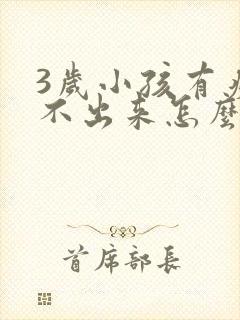 3歲小孩有
不出来怎麼
首席部長